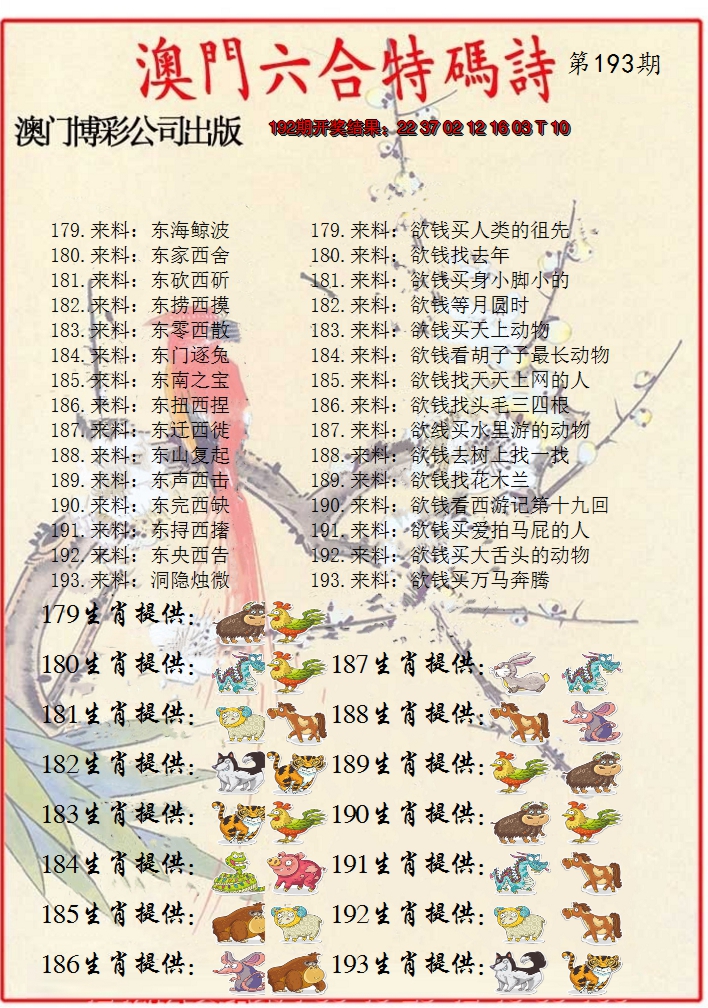 澳門六合特碼詩 第193期
澳门博彩公司出版 192期开奖结果：22 37 02 12 16 03 T 10
179.来料：东海鲸波 179.来料：欲钱买人类的祖先
180.来料：东家西舍 180.来料：欲钱找去年
181.来料：东砍西斫 181.来料：欲钱买身小脚小的
182.来料：东捞西摸 182.来料：欲钱等月圆时
183.来料：东零西散 183.来料：欲钱买天上动物
184.来料：东门逐兔 184.来料：欲钱看胡子予最长动物
185.来料：东南之宝 185.来料：欲钱找天天上网的人
186.来料：东扭西捏 186.来料：欲钱找头毛三四根
187.来料：东迁西徙 187.来料：欲线买水里游的动物
188.来料：东山复起 188.来料：欲钱去树上找一找
189.来料：东声西击 189.来料：欲钱找花木兰
190.来料：东完西缺 190.来料：欲钱看西游记第十九回
191.来料：东挦西撦 191.来料：欲钱买爱拍马屁的人
192.来料：东央西告 192.来料：欲钱买大舌头的动物
193.来料：洞隐烛微 193.来料：欲钱买万马奔腾
179生肖提供：
180生肖提供： 187生肖提供：
181生肖提供： 188生肖提供：
182生肖提供： 189生肖提供：
183生肖提供： 190生肖提供：
184生肖提供： 191生肖提供：
185生肖提供： 192生肖提供：
186生肖提供： 193生肖提供：